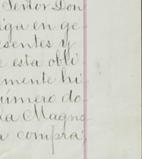 Señor Don
iga en ge
esentes y
e esta obli
mente hi
número do
la Magna
a compra